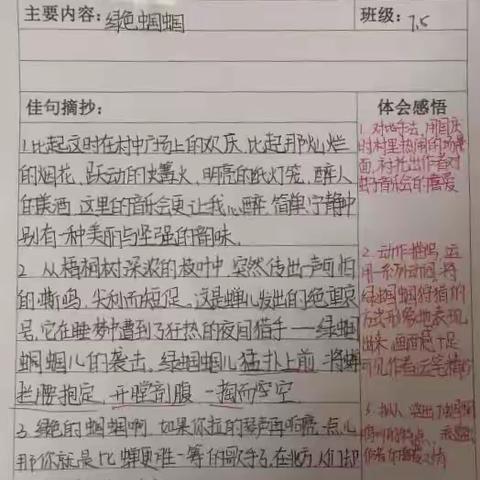 主要内容: 绿色蝈蝈 班级: 7.5
佳句摘抄: 体会感悟
1.比起这时在村中广场上的欢庆,比起那灿烂
的烟花、跃动的火篝火、明亮的纸灯笼、醉人
的美酒,这里的音乐会更让我心醉,简单宁静中
别有一种美丽与坚强的韵味。
1.对比手法,用国庆
时村里热闹的场
面,衬托出作者对
虫子音乐会的喜爱
2. 从梧桐树深浓的枝叶中,突然传出一声可怕
的嘶鸣,尖利而短促。这是蝉儿发出的绝望哀
号,它在睡梦中遭到了狂热的夜间猎手——绿蝈
蝈蝈儿的袭击,绿蝈蝈儿猛扑上前,将蝉
拦腰抱定,开膛剖腹,一掏而空空
2.动作描写,运
用一系列动词,将
绿蝈蝈狩猎的
方式形象地表现
出来,画面感十足
可见作者
3.绿色的蝈蝈啊,如果你拉的琴声再响亮一点儿
那你就是比蝉更胜一等的歌手了,在北方,人们却
3.拟人,突出了